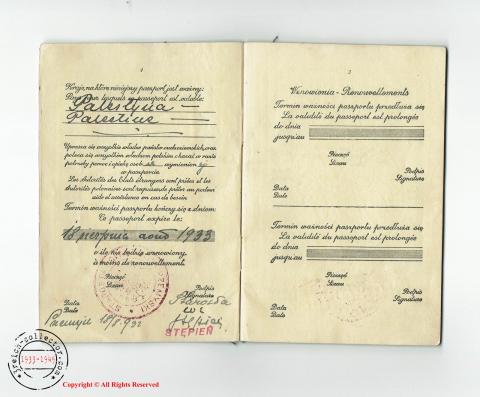 4
Kraje, na które niniejszy paszport jest ważny:
Pays pour lesquels ce passeport est valable:
Palestyna —
Palestine —
Uprasza się wszystkie władze państw cudzoziemskich, oraz
poleca się wszystkim władzom polskim okazać w razie
potrzeby pomoc i opiekę osobie wymienionej
w paszporcie
Les Autorités des Etats étrangers sont priées et les
Autorités polonaises sont requises de prêter au porteur
aide et assistance en cas de besoin
Termin ważności paszportu kończy się z dniem:
Ce passeport expire le:
18 sierpnia août 1933
o ile nie będzie wznowiony
à moins de renouvellement
Pieczęć
Sceau
Podpis
Signature
Starosta
wz
Data
Date
Przemyśl 18/8 932
STĘPIEŃ
Wznowienia - Renouvellements
Termin ważności paszportu przedłuża się
La validité du passeport est prolongée
do dnia
jusqu'au
Pieczęć
Sceau
Podpis
Signature
Data
Date
Termin ważności paszportu przedłuża się
La validité du passeport est prolongée
do dnia
jusqu'au
Pieczęć
Sceau
Podpis
Signature
Data
Date
3reich-collector.com
1933-1945
Copyright © All Rights Reserved